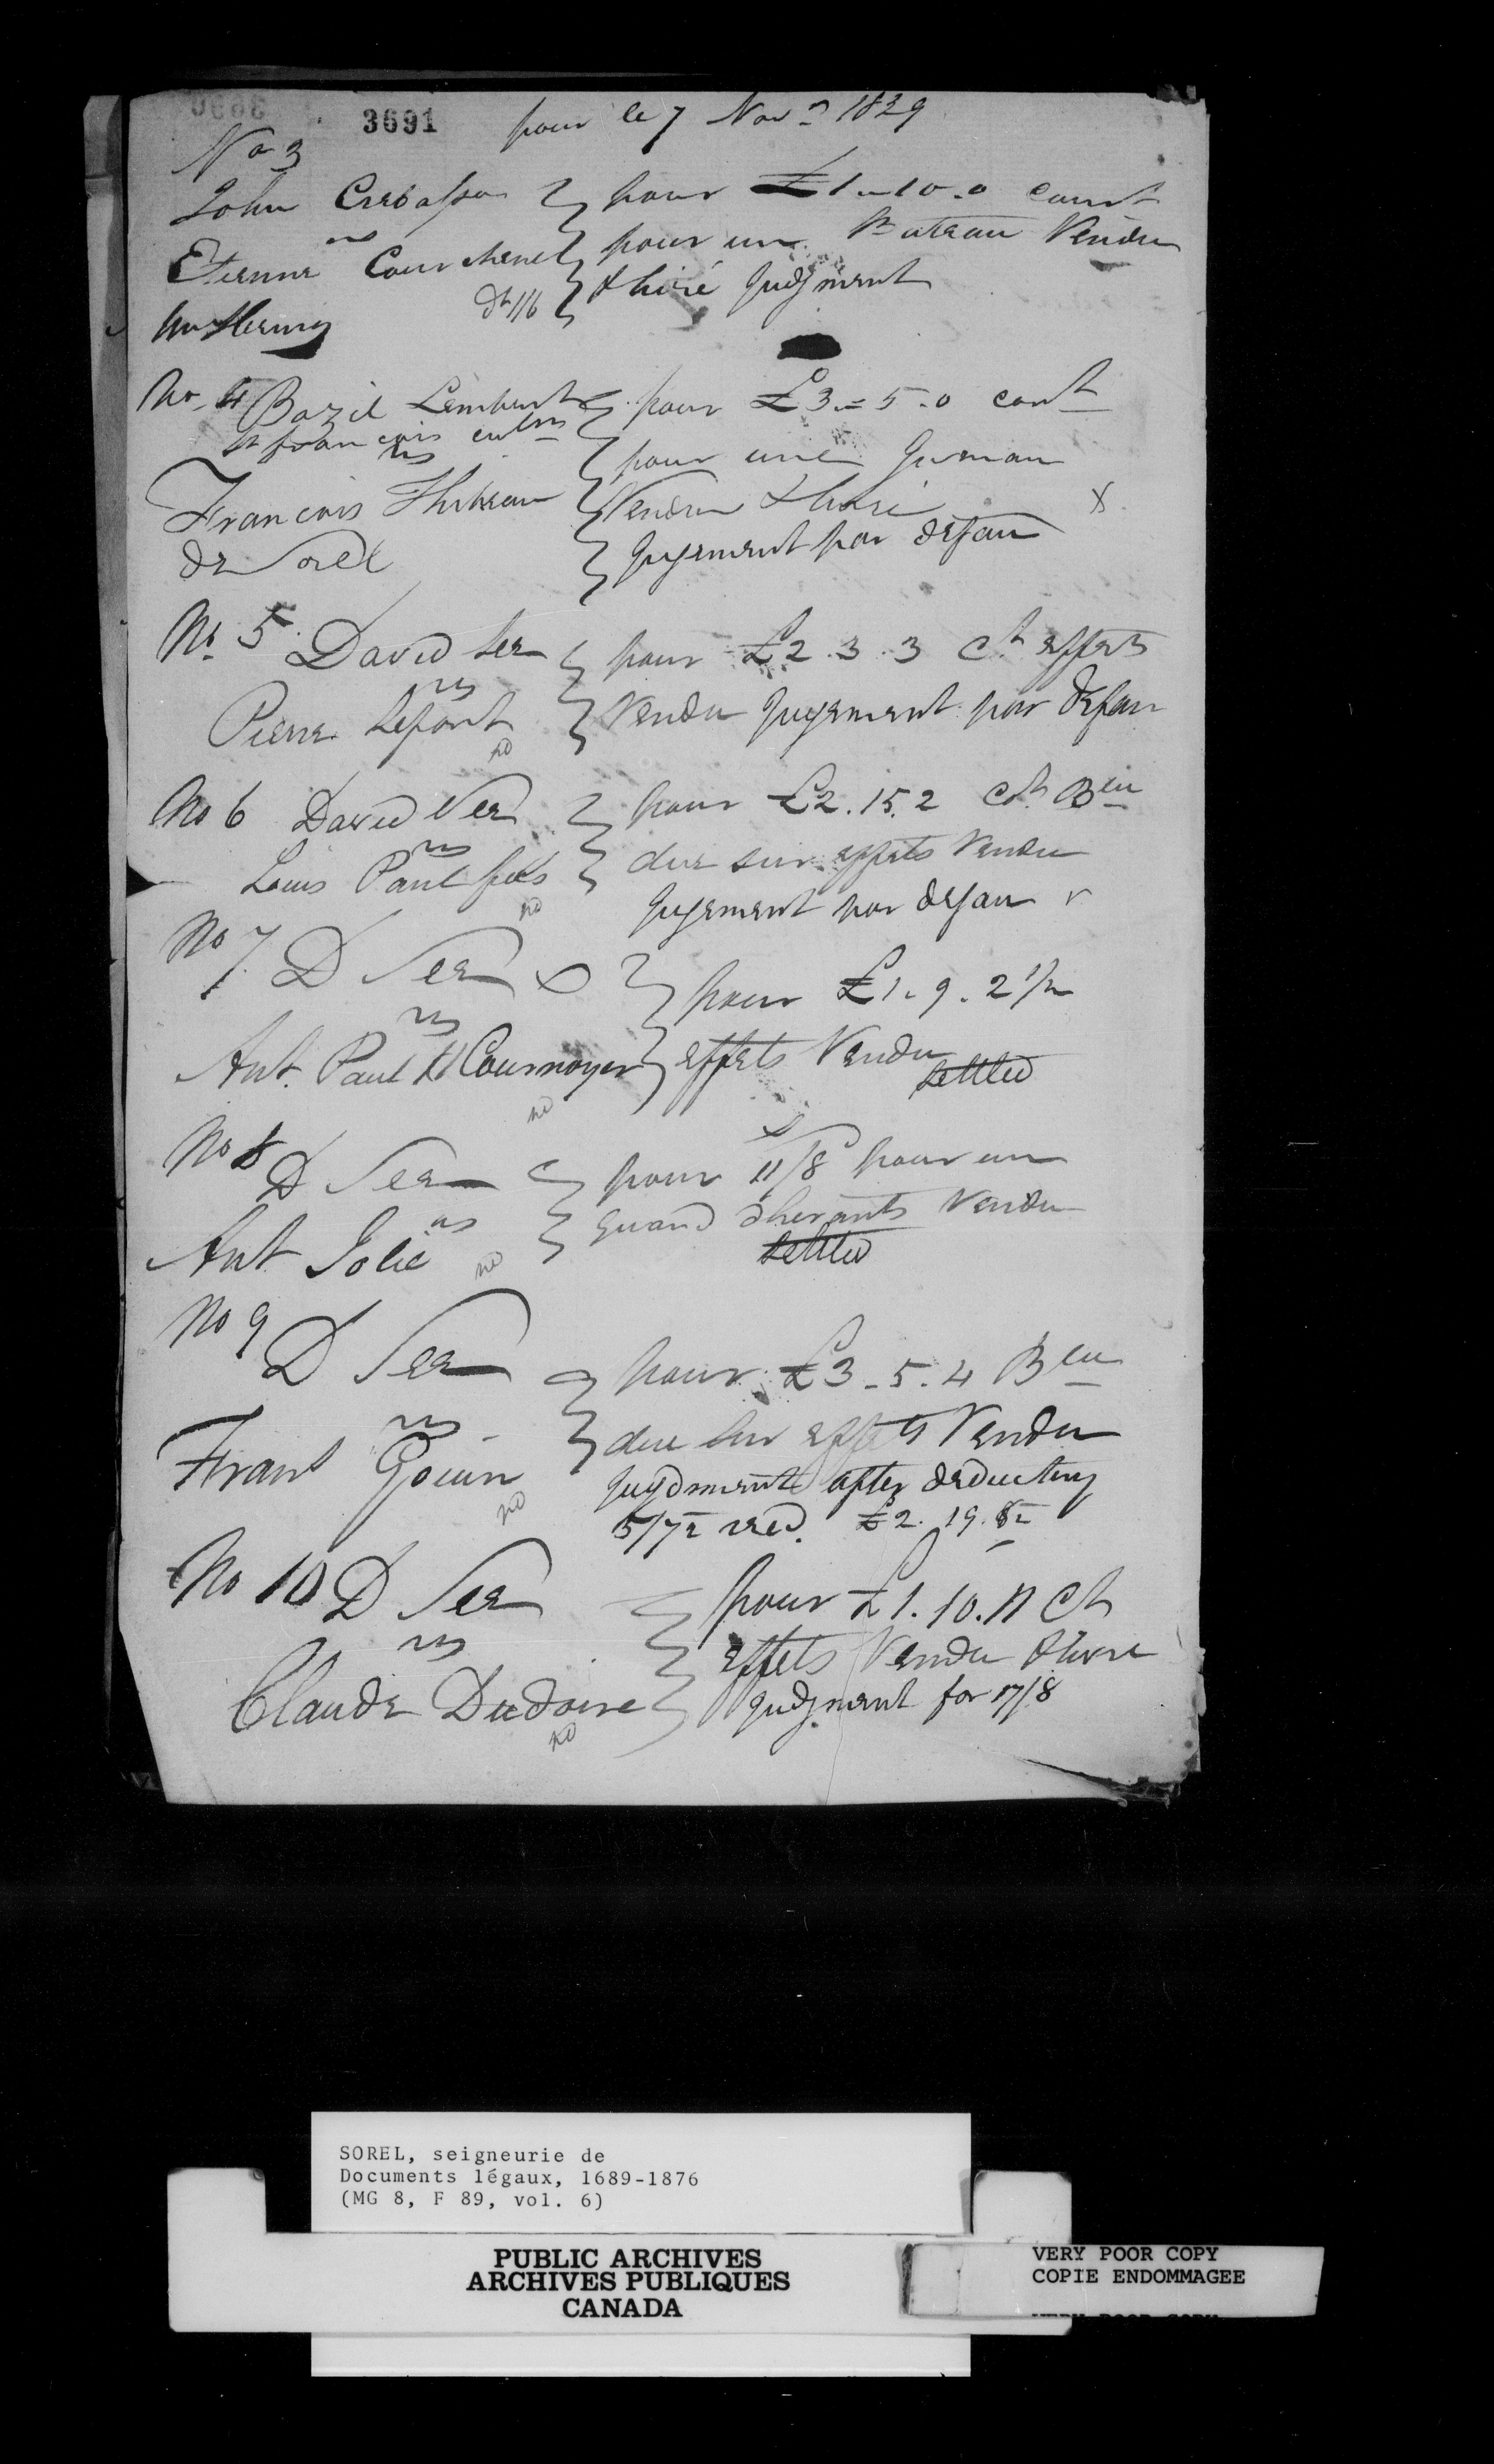 3691 pour le 7 Nov 1829
No 3
John Crebassa pour £1-10-0 court
vs
Etienne Courchene pour un Bateau Vendu
& livré Judgment
No 4 Bazil Lembert pour £3-5-0 cort
St francois
vs
pour une Jument
François Thibeau Vendu & livré x
de Sorel Jugement par defau
No 5 David Lee pour £2.3.3 Ct effets
vs
Pierre Lefort Vendu Jugement par defau
no
No 6 David Lee pour £2.15.2 Ct Bce
vs
Louis Paul fils due sur effets Vendu
no
Jugement par defau
No 7 D Lee pour £1.9.2 1/2
vs
Ant. Paul Cournoyer effets Vendu
settled
no
No 8 D Lee pour 11/8 pour un
vs
Ant Jolie Vendu
no
settled
No 9 D Lee pour £3-5.4 Bce
vs
Frans Gouin due sur effets Vendu
no
Jugdment after deducting
5/7 recd. £2.19.
No 10 D Lee pour £1.10.11 Ct
vs
effets Vendu & livré
Claude Dudoire Judgment for 17/8
no
SOREL, seigneurie de
Documents légaux, 1689-1876
(MG 8, F 89, vol. 6)
PUBLIC ARCHIVES
ARCHIVES PUBLIQUES
CANADA
VERY POOR COPY
COPIE ENDOMMAGEE
VERY POOR COPY